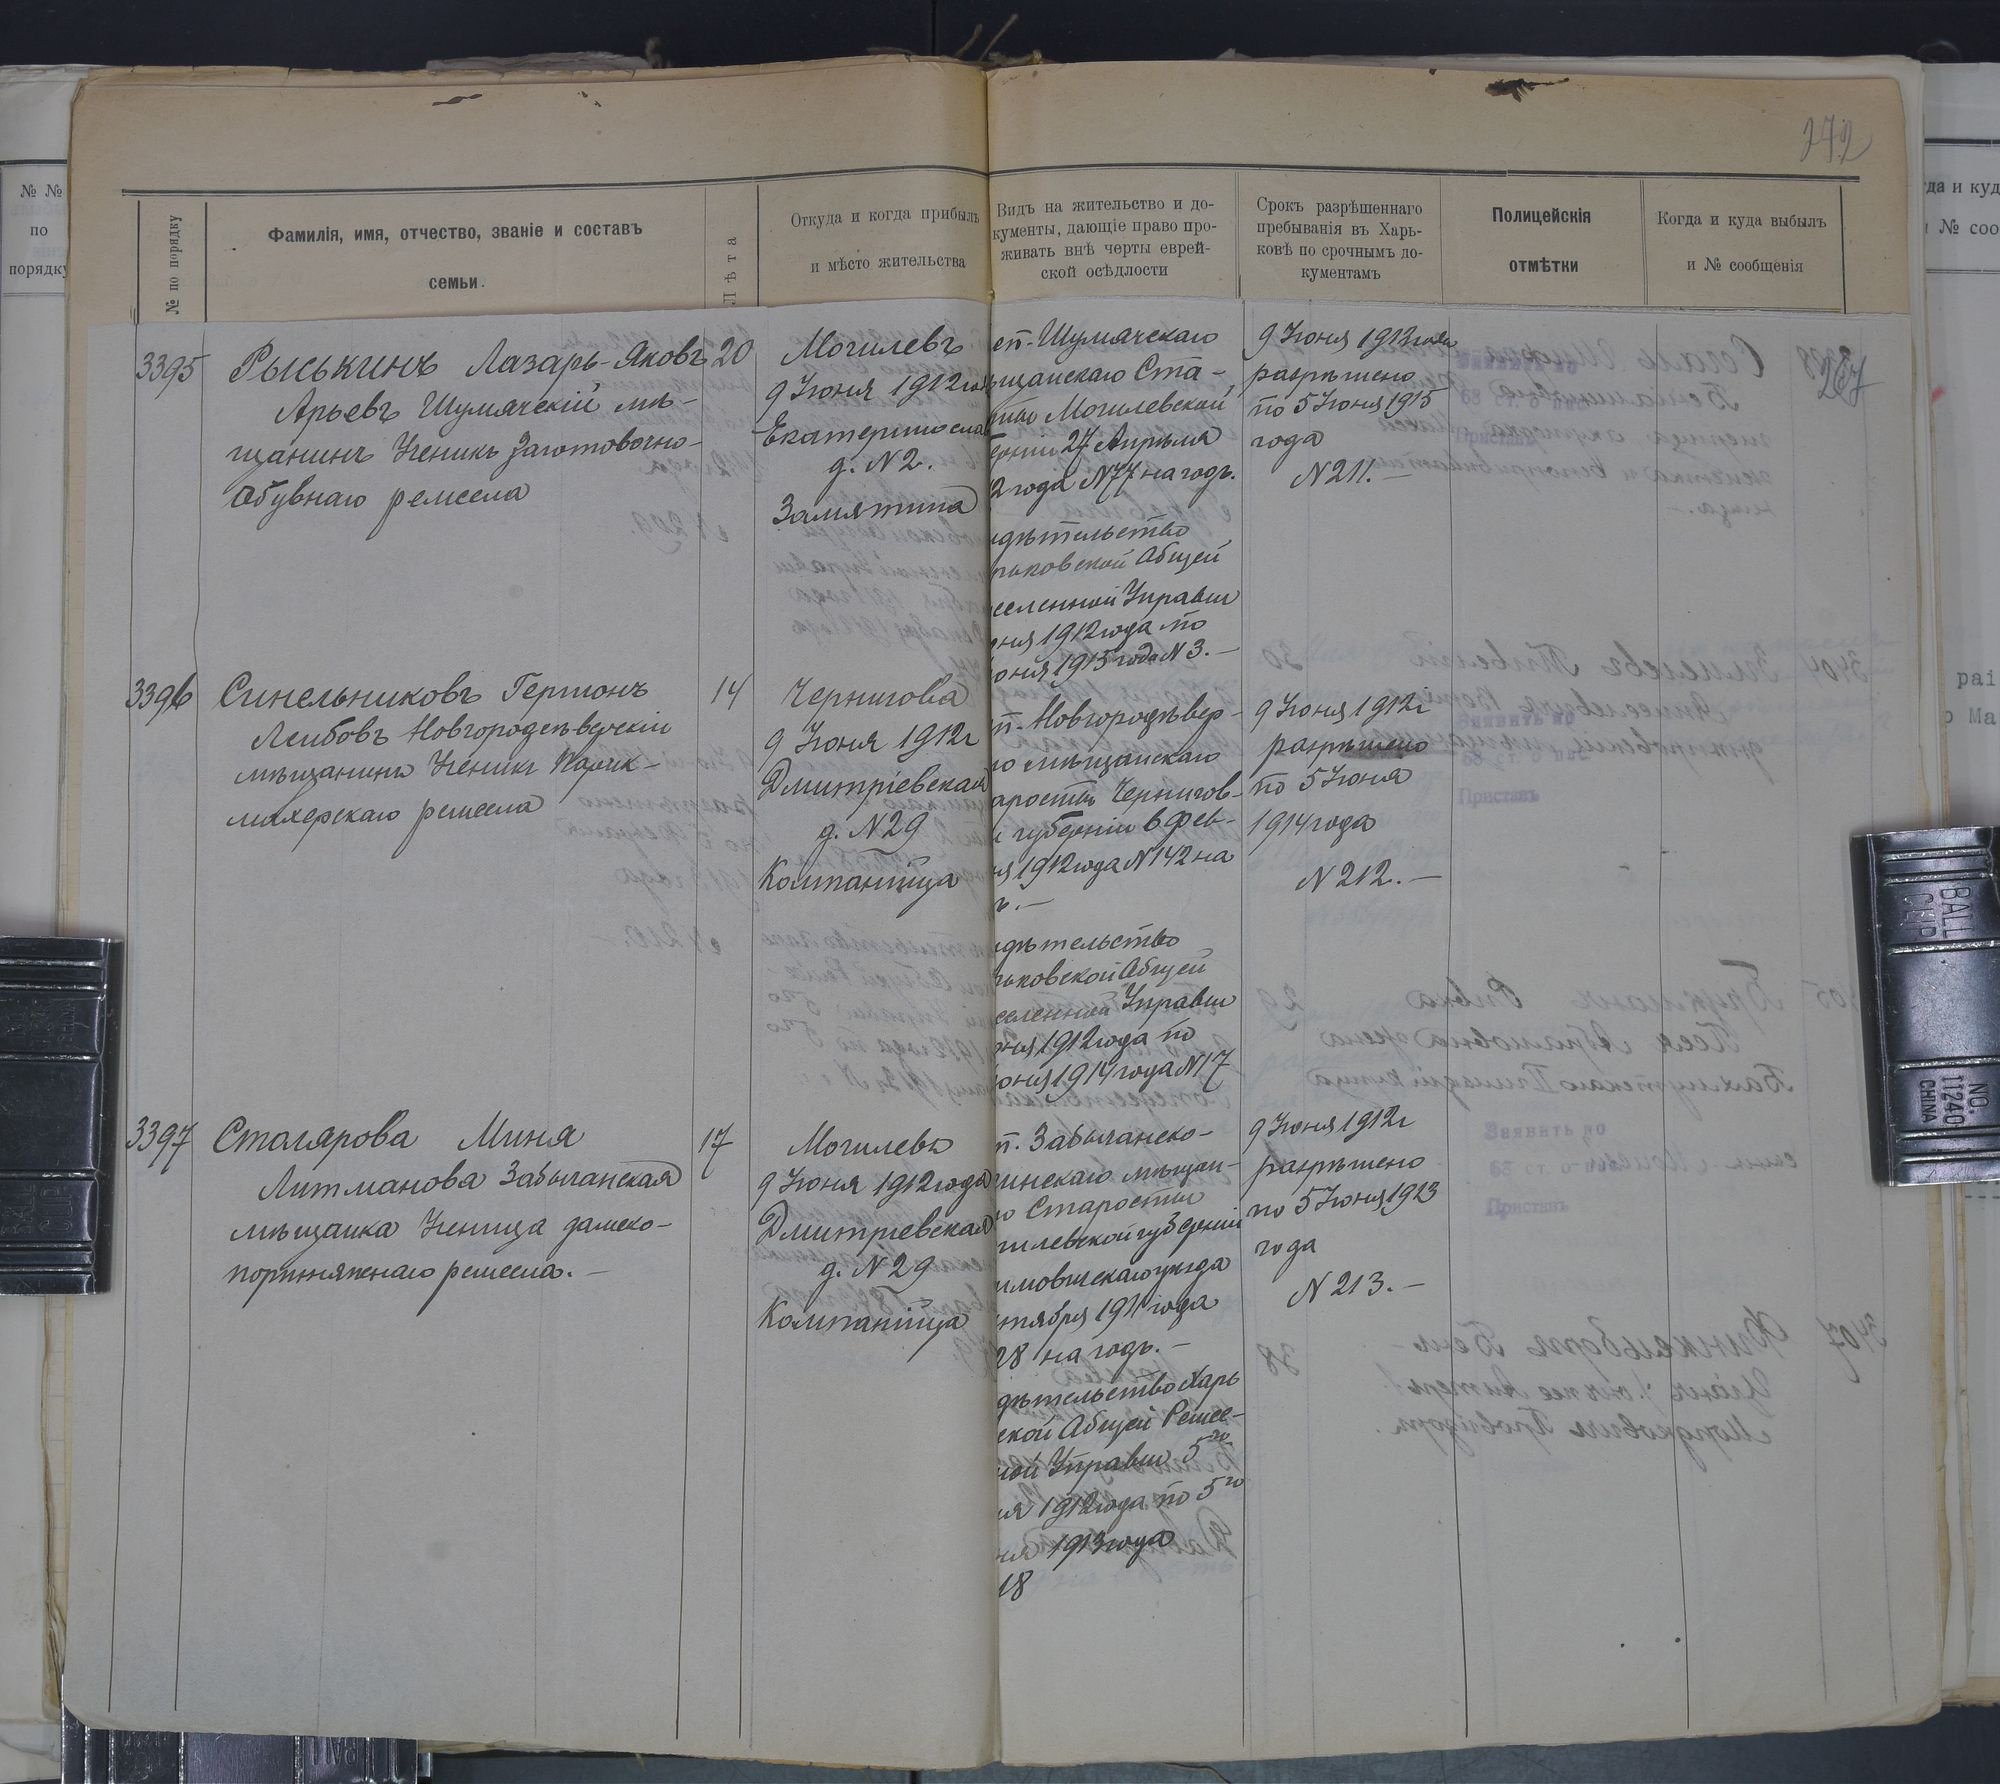 272
№ по порядку
Фамилія, имя, отчество, званіе и составъ
семьи.
Лѣта
Откуда и когда прибылъ
и мѣсто жительства
Видъ на жительство и до-
кументы, дающіе право про-
живать внѣ черты еврей-
ской осѣдлости
Срокъ разрѣшеннаго
пребыванія въ Харь-
ковѣ по срочнымъ до-
кументамъ
Полицейскія
отмѣтки
Когда и куда выбылъ
и № сообщенія
267
3395
Рыськинъ Лазарь-Яковъ
Арьевъ Шумячскій мѣ-
щанинъ Ученикъ Заготовочно-
Обувнаго ремесла
20
Могилевъ
9 Іюня 1912 го
Екатеринослав
д. N 2.
Замятина
сп. Шумячскаго
щанскаго Ста-
Могилевской
ерніи 27 Апрѣля
2 года N 77 на годъ.
дѣтельство
рьковской Общей
есленной Управы
ня 1912 года по
юня 1915 года N 3. —
9 Іюня 1912 года
разрѣшено
по 5 Іюня 1915
года
N 211. —
3396
Синельниковъ Герионъ
Лейбовъ Новгородсѣверскій
мѣщанинъ Ученикъ Парик-
махерскаго ремесла
14
Чернигова
9 Іюня 1912 г
Дмитріевская
д. N 29
Компанійца
п. Новгородсѣвер-
го мѣщанскаго
аросты Чернигов-
й губерніи 6 Фев-
ля 1912 года N 142 на
ъ. —
дѣтельство
рьковской Общей
есленной Управы
юня 1912 года по
юня 1914 года N 17
9 Іюня 1912 г
разрѣшено
по 5 Іюня
1914 года
N 212. —
3397
Столярова Миня
Литманова Забычанская
мѣщанка Ученица дамско-
портняжнаго ремесла. —
17
Могилевъ
9 Іюня 1912 года
Дмитріевская
д. N 29
Компанійца
п. Забычанско-
инскаго мѣщан-
о Старосты
гилевской губерніи
имовичскаго уѣзда
нтября 1911 года
28 на годъ. —
дѣтельство Харь
ской Общей Ремес-
ной Управы 5го
ня 1912 года по 5го
ня 1913 года
18
9 Іюня 1912 г
разрѣшено
по 5 Іюня 1913
года
N 213. —
№ №
по
порядку
да и куд
№ соо
BALL
CLIP
NO.
11240
CHINA